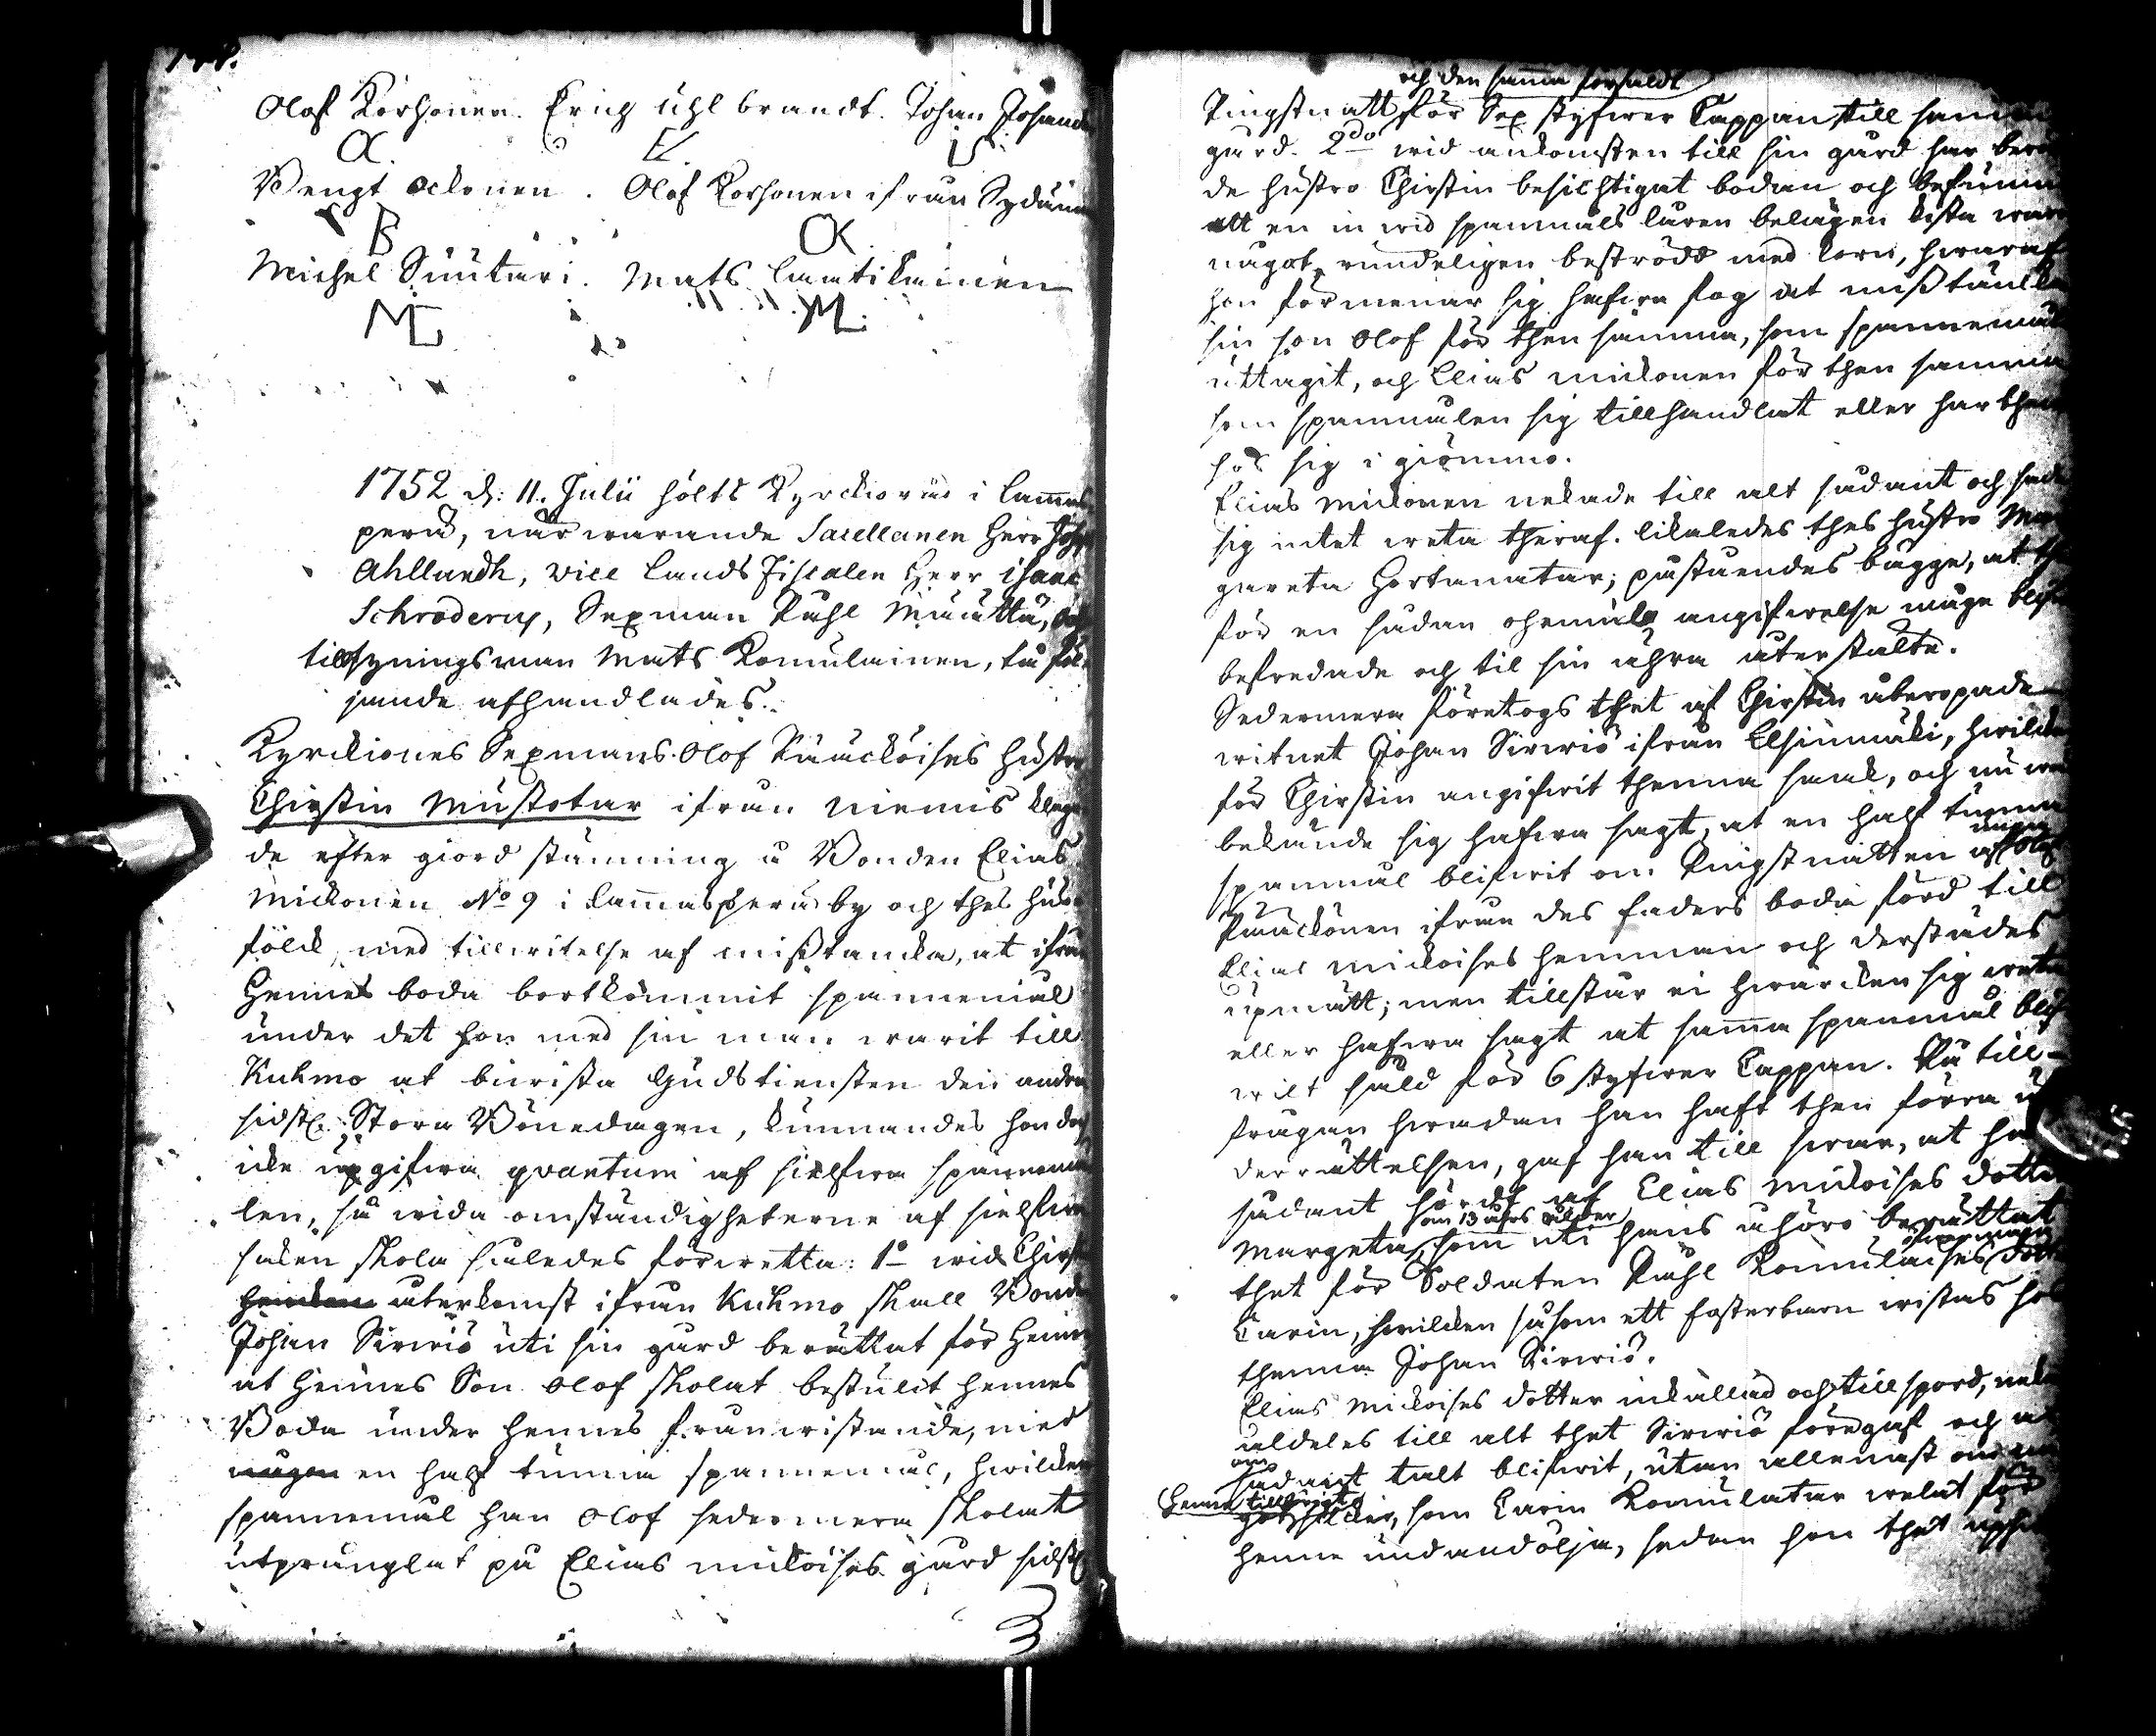 Olof Korhonen. Erich Uhlbrandt. Johan Johans
OK. E IS.
Bengt Ockonen. Olof Korhonen ifrån Sydäm
B OK.
Michel Suutari. Mats Laatikainen
MC ML.
1752 d. 11. Julii hölts Kyrckioråd i Lamas
perä, närwarande Sacellanen Herr Joh:
Ahllundh, vice Lands Fiscalen Herr Isaac
Schroderus, Sexman Påhl Määttä, och
tillsyningsman Mats Komulainen, då föl-
jande afhandlades.
Kyrckiones Sexmans Olof Pääcköises hustru
Chirstin Mustotar ifrån Niemis klaga
de efter giord stämning å Bonden Elias
Mickonen No 9 i Lammasperä by och thes hus-
fölck, med tillwitelse af misstancka, at ifrån
Hennes boda bortkommit spannemål
under det hon med sin man warit till
Kuhmo at biwista Gudstiensten den andra
sidstl. Stora Bönedagen, kunnandes hon dog
icke upgifwa qvantum af sielfwa spannemå
len, så wida omständigheterne af sielfwa
saken skola således förwetta: 1o wid Chirstin
hennes återkomst ifrån Kuhmo skall Bonden
Johan Sirwiö uti sin gård berättat för Henne
at Hennes Son Olof skolat bestulit hennes
Boda under hennes frånwistande, med
någon en half tunna spannemål, hwilken
spannemål han Olof sedermera skolat
utprånglat på Elias Mickoises gård sidstl.
och den samma försåldt
Pingstnatt för Sex styfwer Cappan till samma
gård. 2do wid ankomsten till sin gård har berör
de hustro Chirstin besichtigat bodan och befunnit
att en in wid spannmåls låren belägen kista warit
något rundeligen beströdd med korn, hwaraf
hon förmenar sig hafwa fog at misstäncka
sin son Olof för then samma, som spannemålen
uttagit, och Elias Mickonen för then samma
som spannmålen sig tillhandlat eller har then
hos sig i giömmo.
Elias Mickonen nekade till alt sådant och sade
sig intet weta theraf. likaledes thes hustro Mar
gareta Hortanatar, påståendes bägge, at the
för en sådan ohemula angifwelse måga blifwa
befredade och til sin ähra återstälte.
Sedermera företogs thet af Chirstin åberopade
witnet Johan Sirwiö ifrån Elsinmäki, hwilken
för Chirstin angifwit thenna saak, och nu
bekände sig hafwa sagt, at en half tunna
spannmål blifwit om Pingstnatten af Olof
Pääckönen ifrån des faders boda förd till
Elias Mickoises hemman och derstädes
upmätt; men tillstår ei hwarcken sig weta
eller hafwa sagt at sama spannmål blif
wilt såld för 6 styfwer Cappan. På till-
frågan hwadan han haft then förra un
derrättelsen, gaf han till swar, at han
sådant hördt af Elias Mickoises dotter
om 13 åhrs ålder
Margeta, som uti hans åhöro berättat
thet för Soldaten Påhl Komulaises dotter
Carin, hwilcken såsom ett fosterbarn wistas hos
thenna Johan Sirwiö.
Elias Mickoises dotter inkallad och tillspord, nekade
aldeles till alt thet Sirwiö föregaf och at
om
sådant talt blifwit, utan allenast om
Henne tillhörigt
som Carin Komulatar welat för
henne undandölja, sedan hon thet